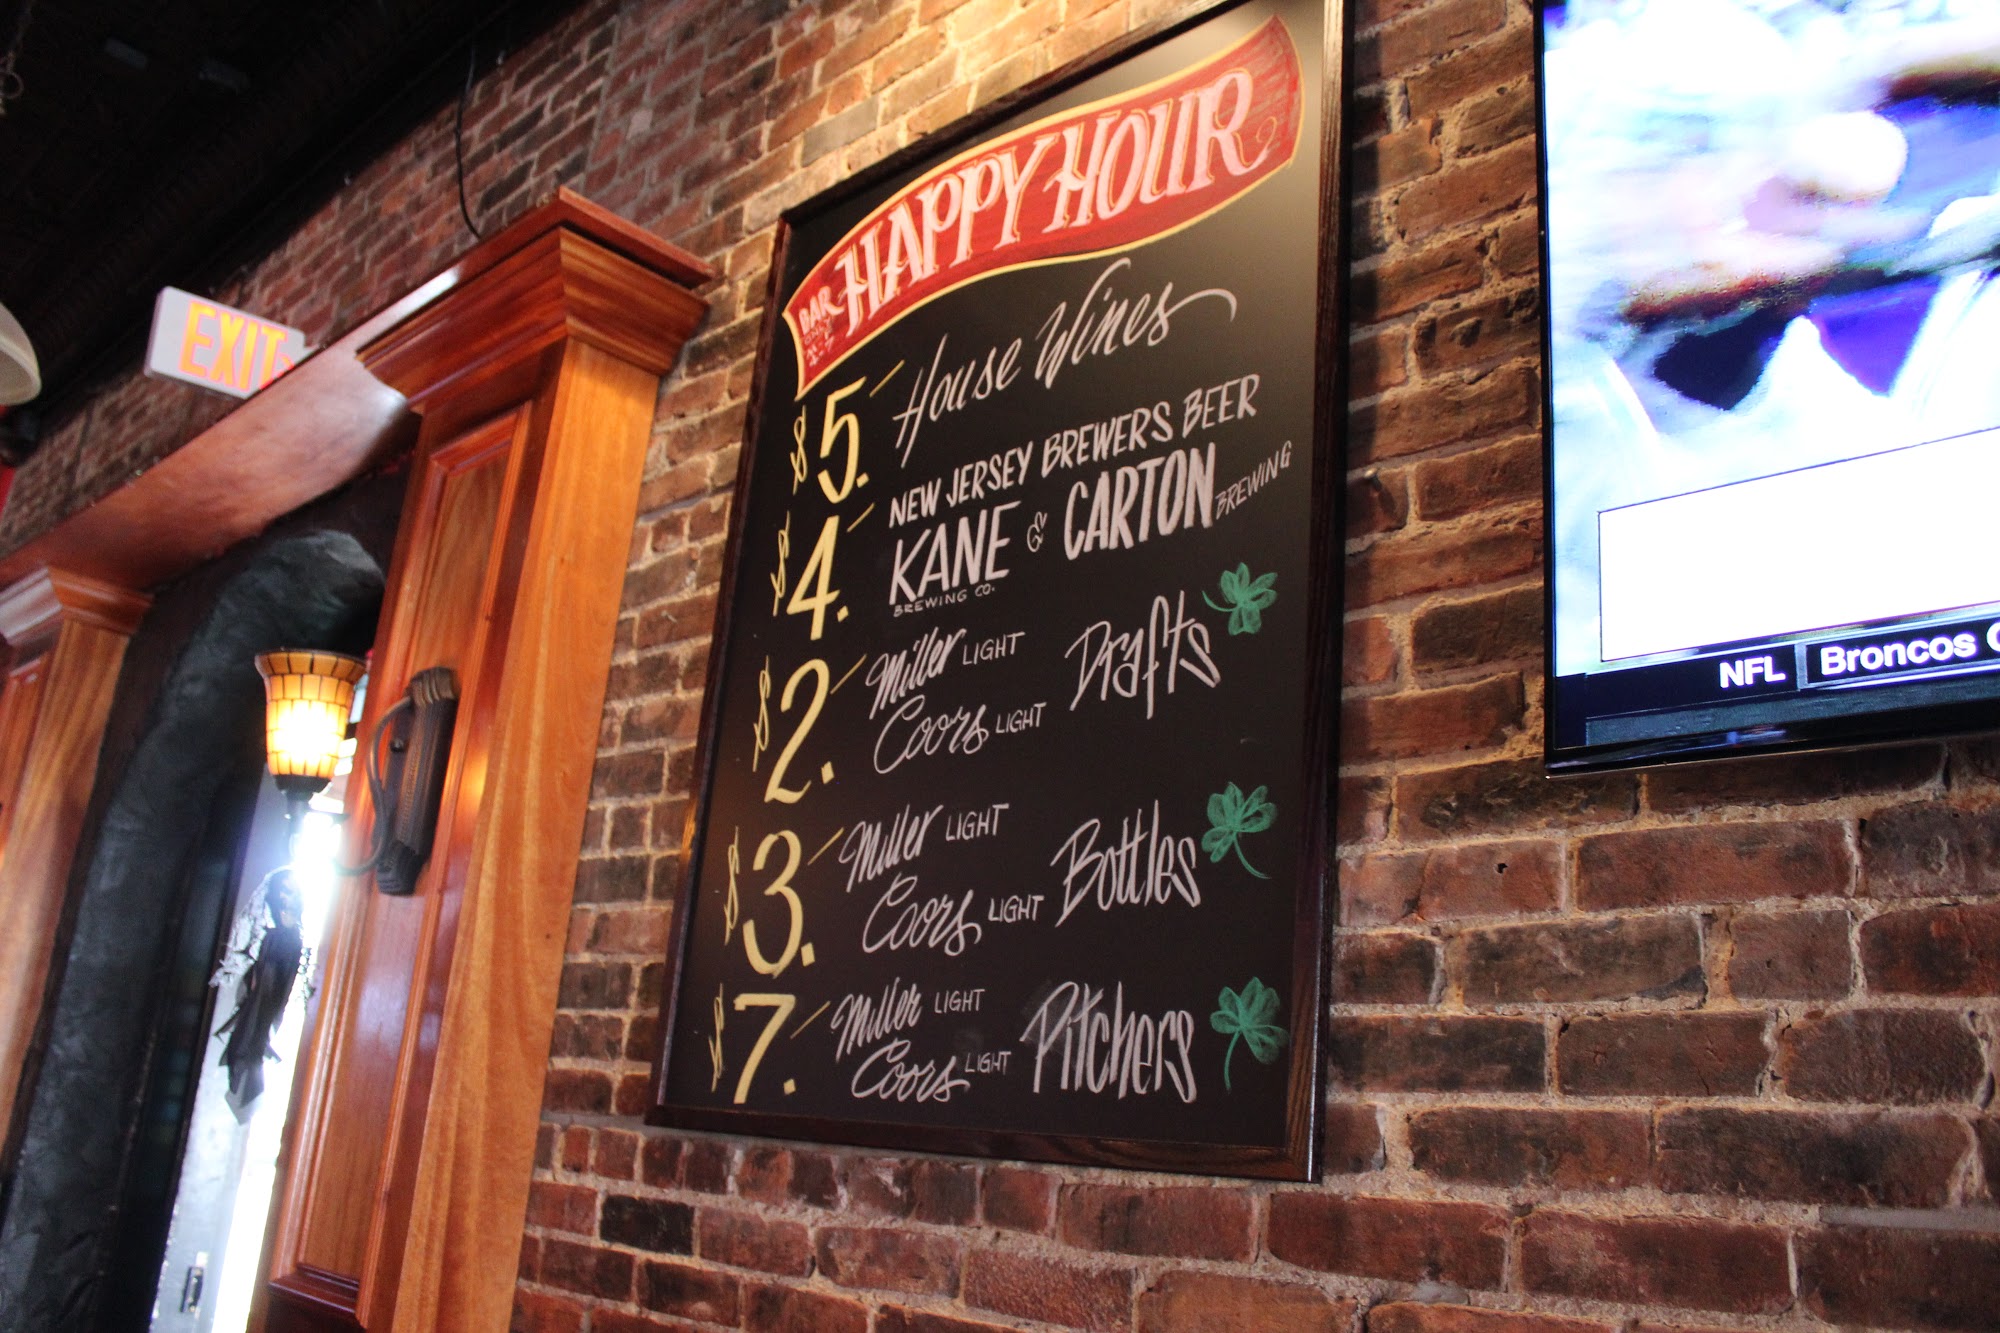 EXIT
HAPPY HOUR
BAR
ONLY
4-7
$5. House Wines
$4. NEW JERSEY BREWERS BEER
KANE & CARTON BREWING
BREWING CO.
$2. Miller LIGHT
Coors LIGHT
Drafts
$3. Miller LIGHT
Coors LIGHT
Bottles
$7. Miller LIGHT
Coors LIGHT
Pitchers
NFL Broncos